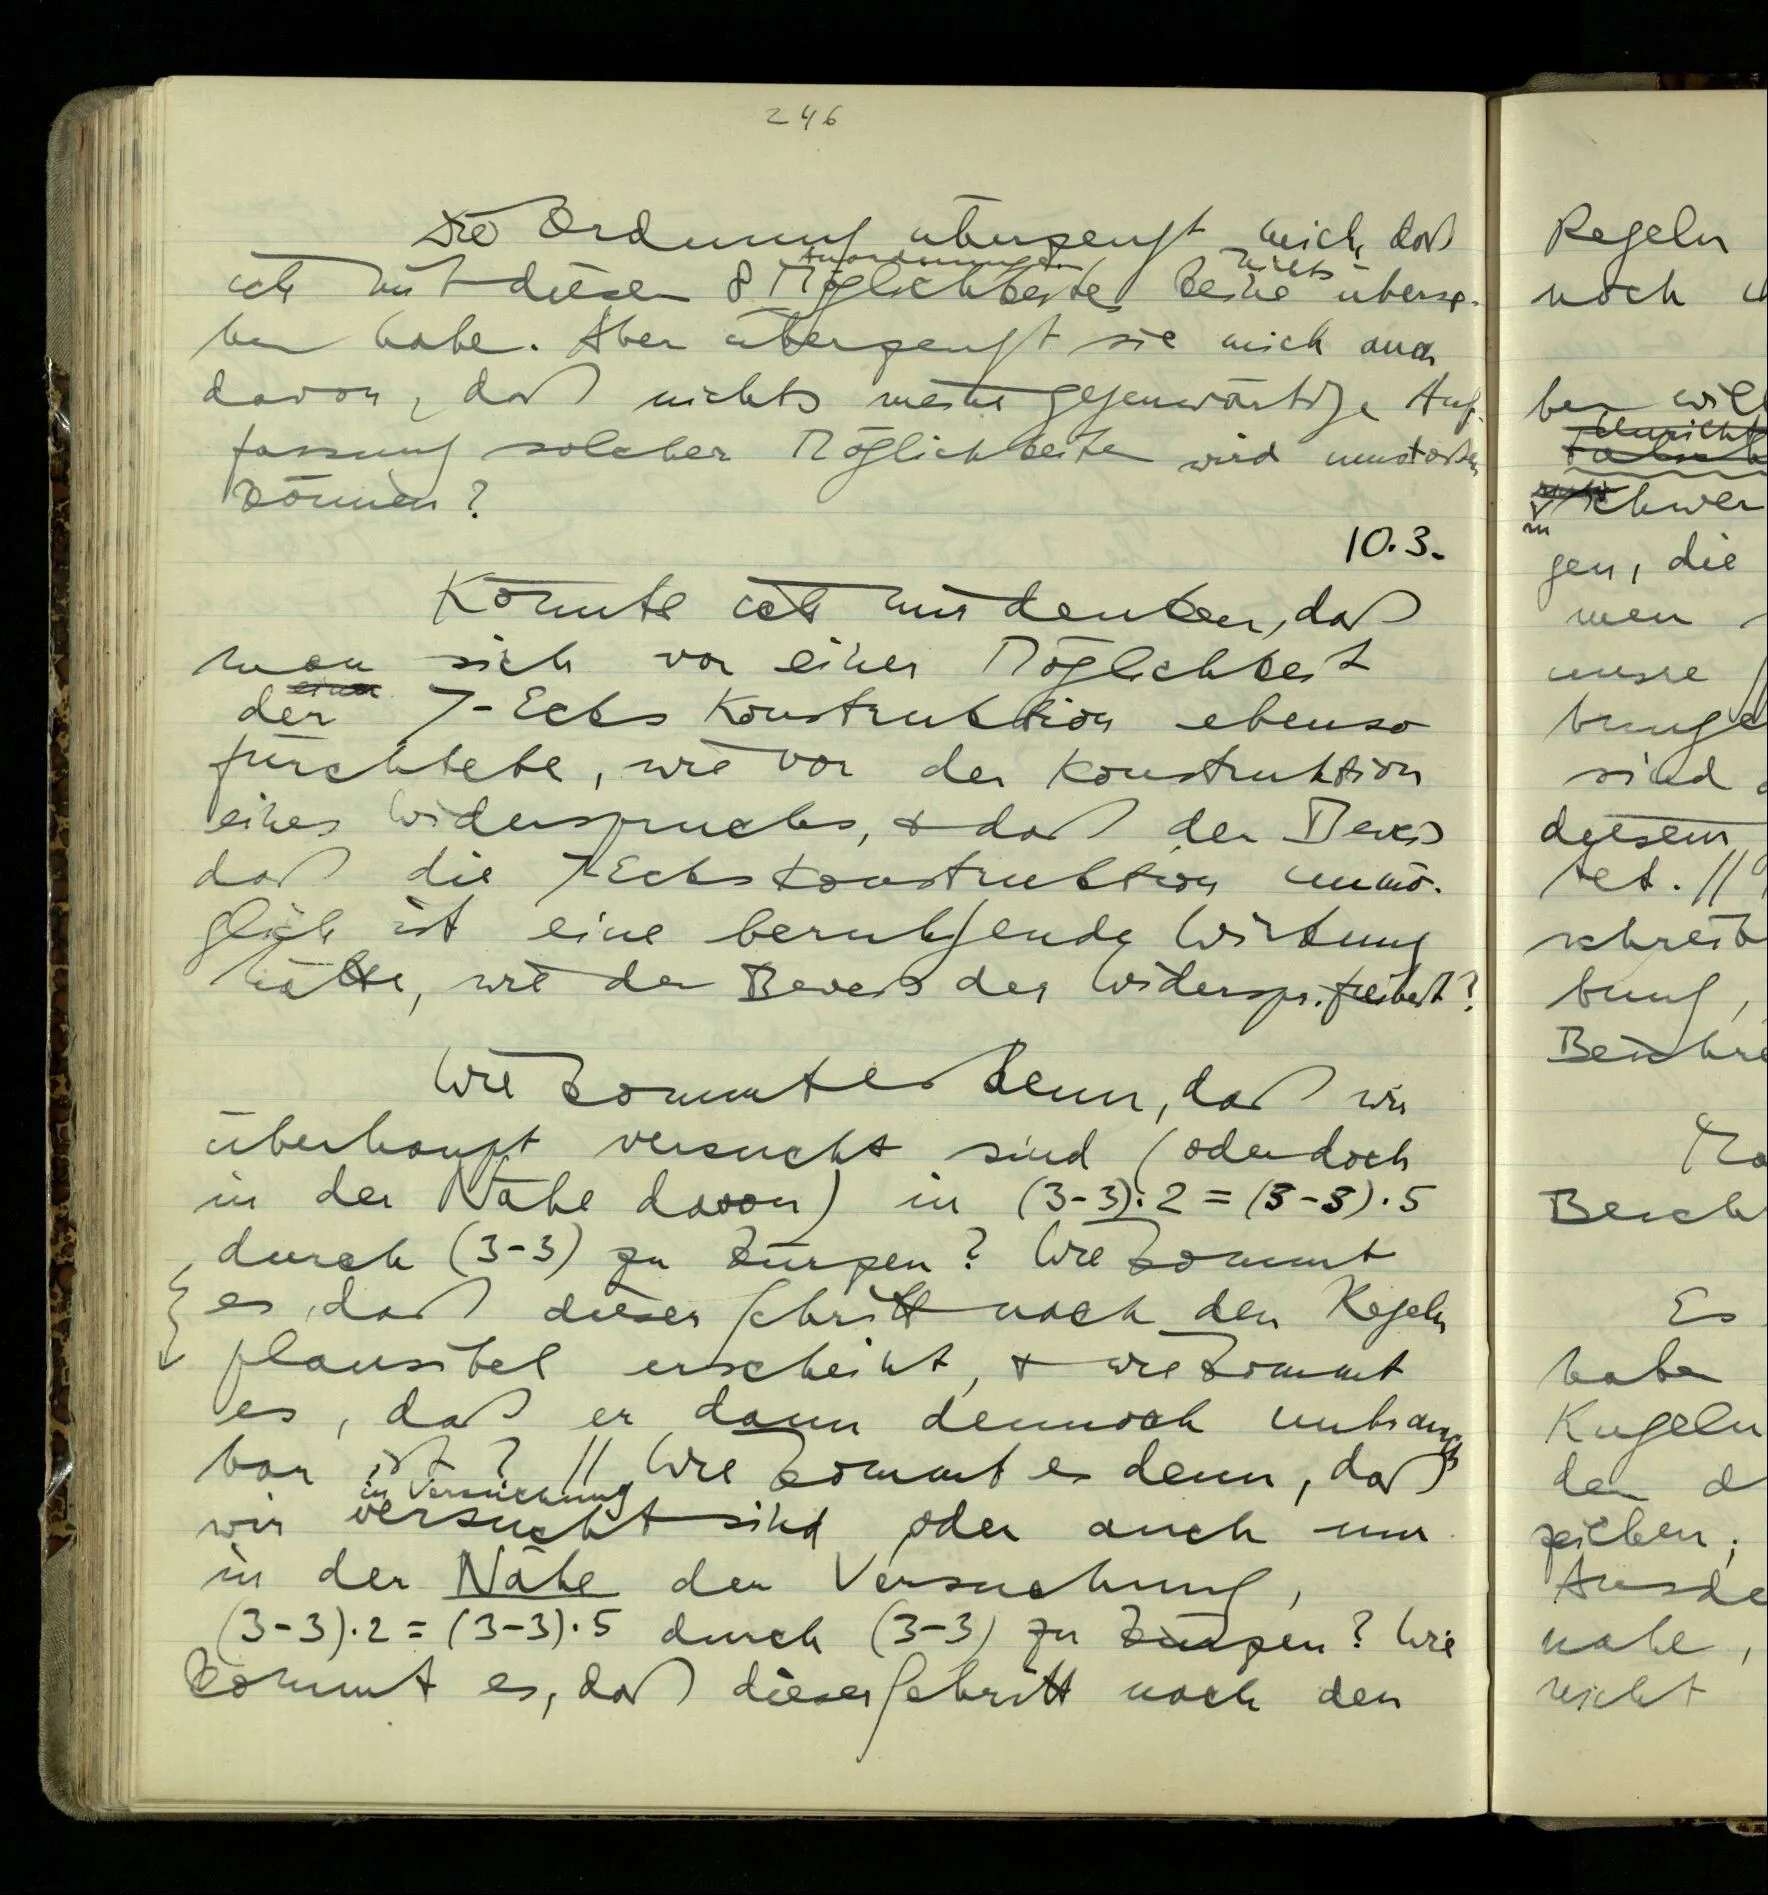 246
Die Ordnung überzeugt mich, daß
Anordnungen nichts
ich mit diesen 8 Möglichkeiten keine überse-
hen habe. Aber überzeugt sie mich auch
davon, daß nichts meine gegenwärtige Auf-
fassung solcher Möglichkeiten wird umstoßen
können?
10.3.
Könnte ich mir denken, daß
man sich vor einer Möglichkeit
einer
der 7-Ecks Konstruktion ebenso
fürchtete, wie vor der Konstruktion
eines Widerspruchs, & daß der Beweis
daß die 7-Eckskonstruktion unmö-
glich ist eine beruhigende Wirkung
hätte, wie der Beweis der Widerspr.freiheit?
Wie kommt es denn, daß wir
überhaupt versucht sind (oder doch
in der Nähe davon) in (3-3)·2 = (3-3)·5
durch (3-3) zu kürzen? Wie kommt
es, daß dieser Schritt nach den Regeln
plausibel erscheint, & wie kommt
es, daß er dann dennoch unbrauch
bar ist? // Wie kommt es denn, daß
in Versuchung
wir versucht sind oder auch nur
in der Nähe der Versuchung,
(3-3)·2 = (3-3)·5 durch (3-3) zu kürzen? Wie
kommt es, daß dieser Schritt nach den
Regeln
noch
ben
gen, die
men
unsre
sind
diesem
tet. //
bung,
Es
habe
Kugeln
den d
zeichen;
nahe,
nicht